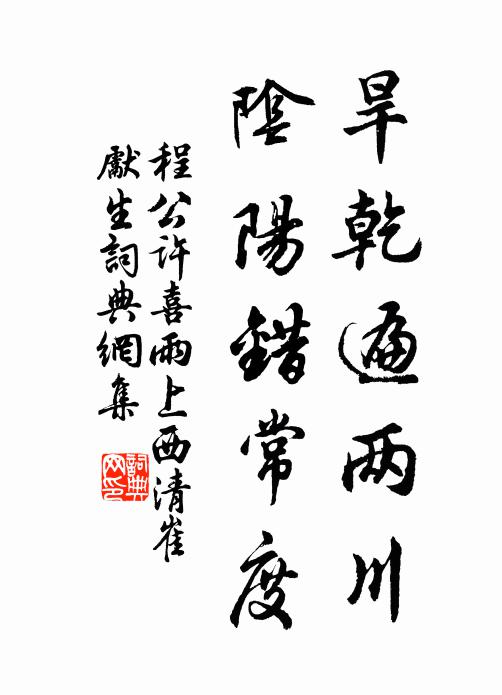 旱乾遍两川
陰陽錯常度
程公許喜雨上西清崔
獻生詞典網集
詞典網印